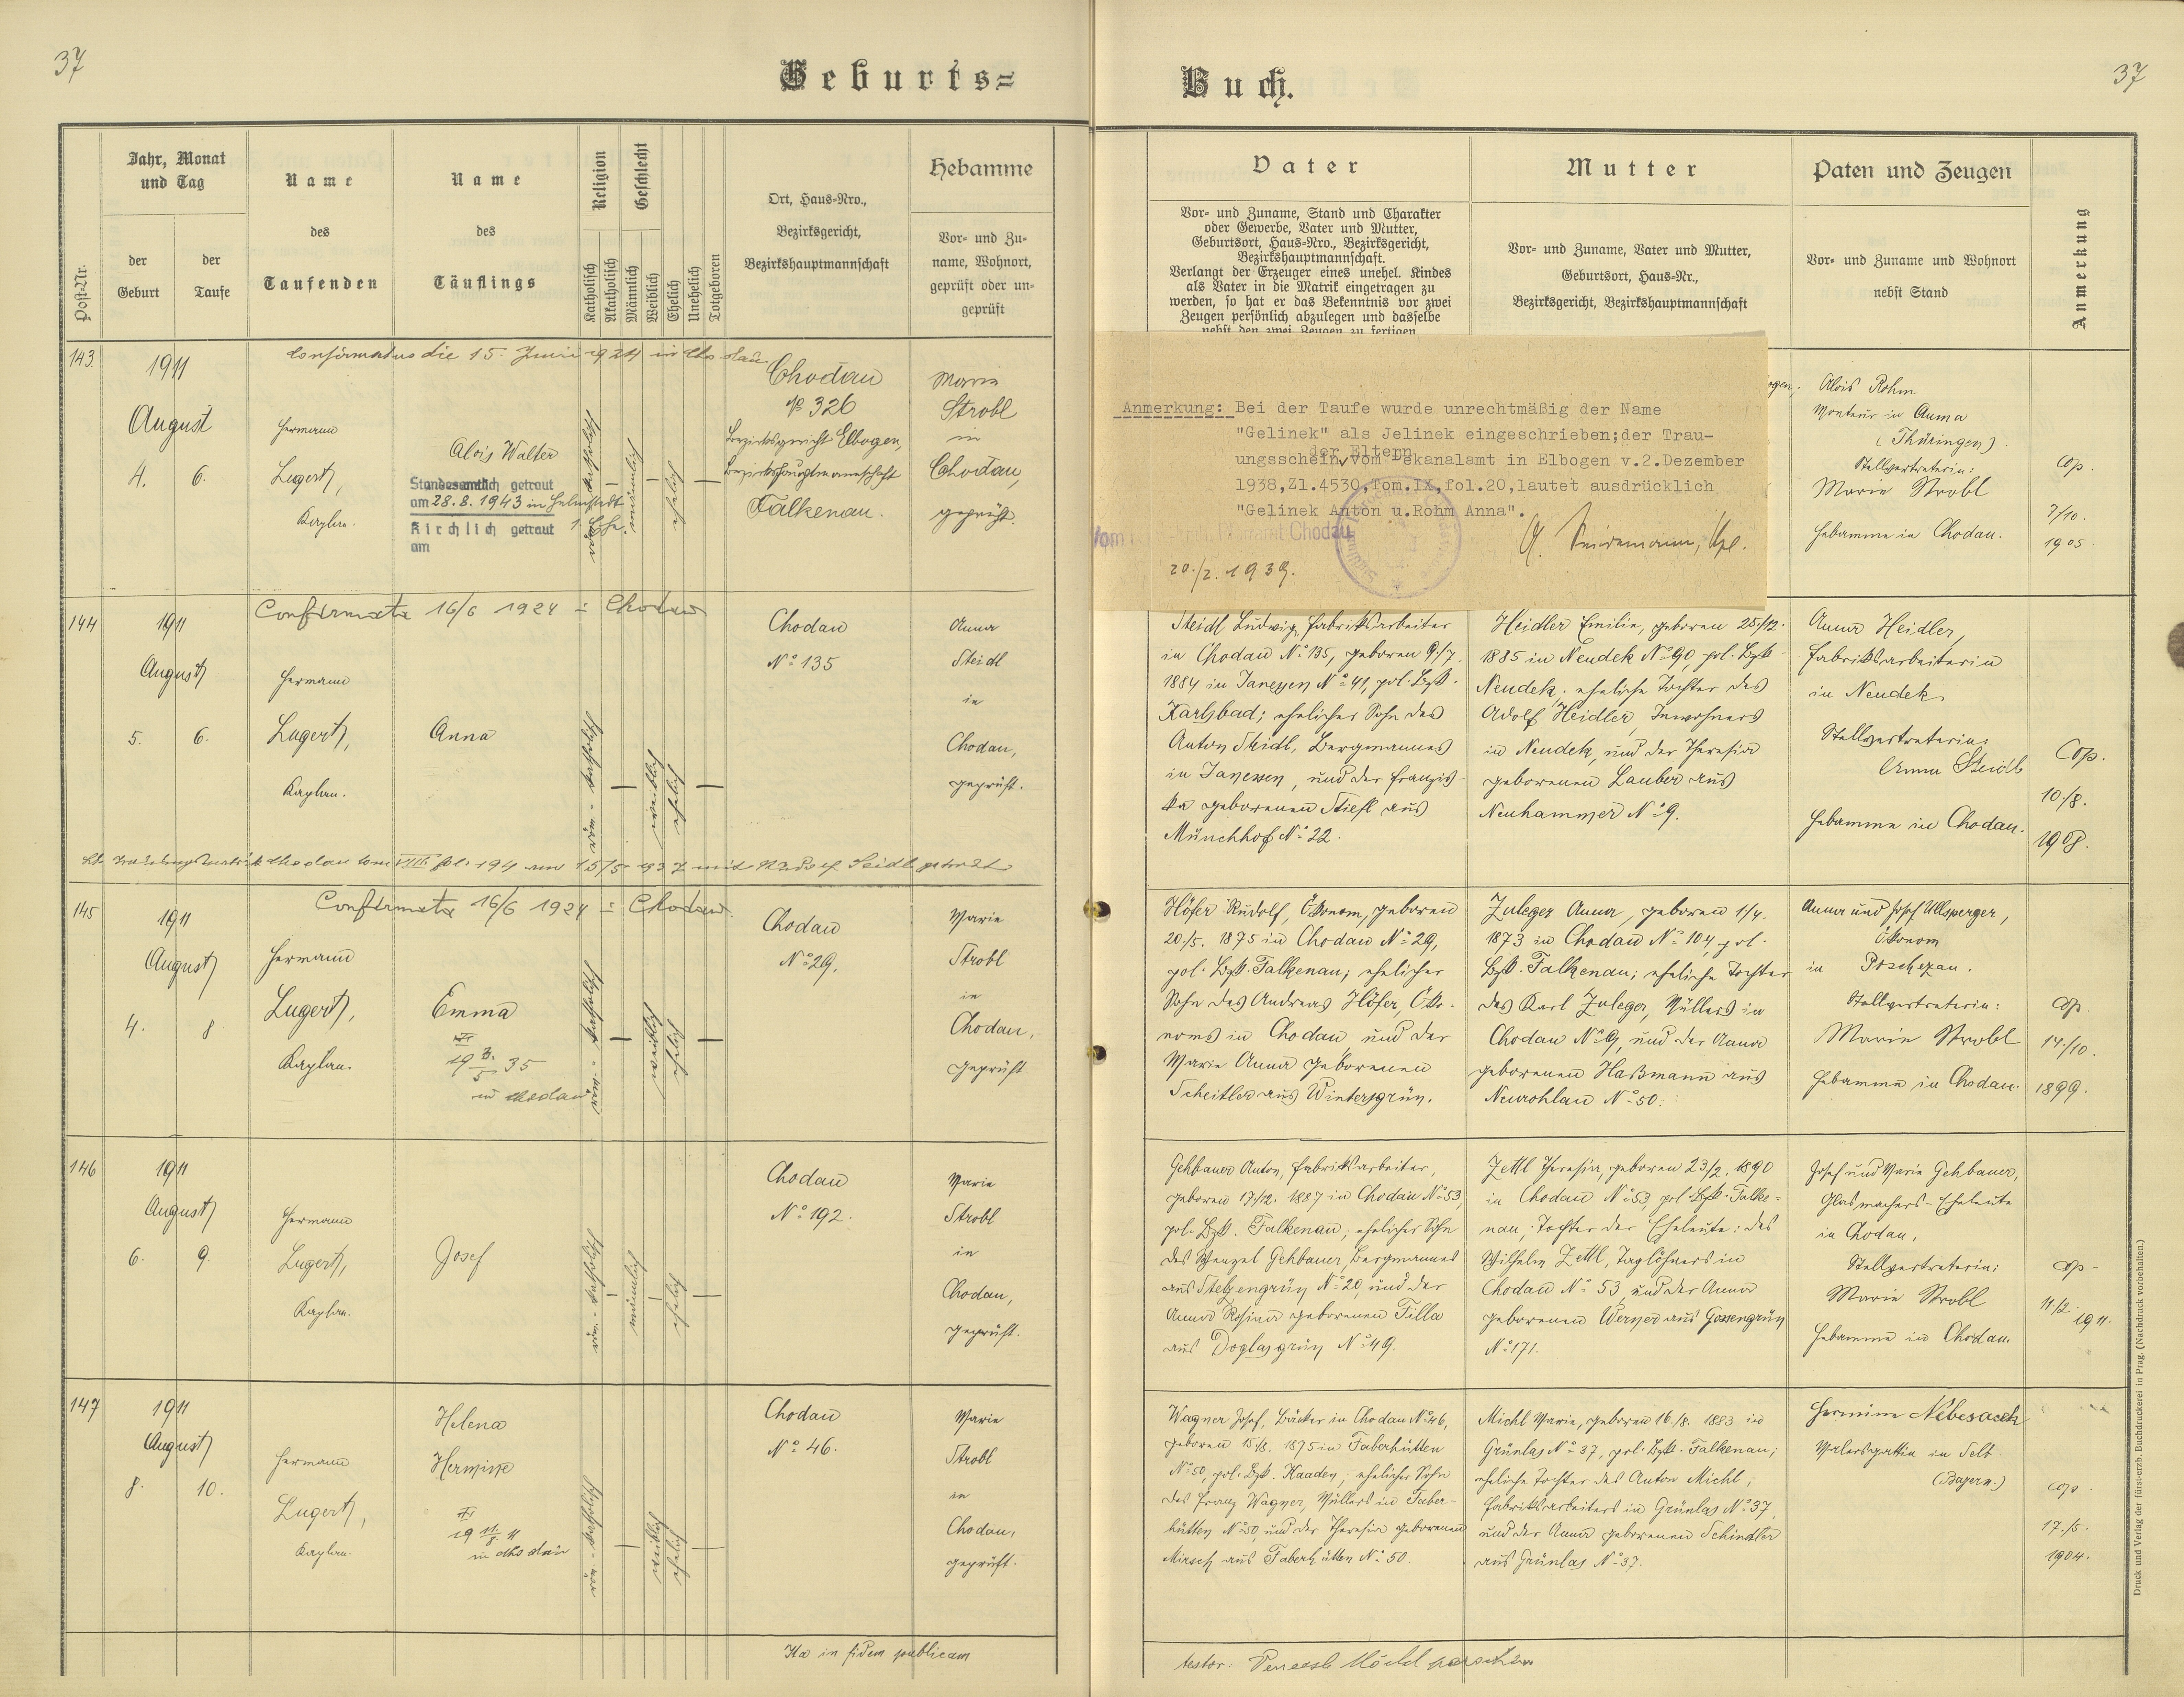 37
Geburts=
Jahr, Monat
und Tag
Name
Name
Religion
Geschlecht
Ort, Haus-Nro.,
Hebamme
Post-Nr.
der
Geburt
der
Taufe
des
Taufenden
des
Täuflings
Katholisch
Akatholisch
Männlich
Weiblich
Ehelich
Unehelich
Totgeboren
Bezirksgericht,
Bezirkshauptmannschaft
Vor- und Zu-
name, Wohnort,
geprüft oder un-
geprüft
143.
1911
August
4. 6.
Confirmatus die 15. Juni 1924 in Chodau
Hermann
Lugert,
Kaplan.
Alois Walter
Standesamtlich getraut
am 28.8.1943 in Helmstedt
1. Ehe.
Kirchlich getraut
am
männlich
ehelich
Chodau
№ 326
Bezirksgericht Elbogen,
Bezirkshauptmannschaft
Falkenau.
Marie
Strobl
in
Chodau,
geprüft.
144
1911
August
5. 6.
Confirmata 16/6 1924 = Chodau
Hermann
Lugert,
Kaplan.
Anna
röm.-katholisch
weiblich
ehelich
Chodau
No 135
Anna
Steidl
in
Chodau,
geprüft.
fol. 194 am 15/5 1937 mit Rudolf Seidl getraut
145
1911
August
4. 8
Confirmata 16/6 1924 = Chodau.
Hermann
Lugert,
Kaplan.
Emma
19 3./5 35
in Chodau
röm.-katholisch
weiblich
ehelich
Chodau
No 29,
Marie
Strobl
in
Chodau,
geprüft
146
1911
August
6. 9.
Hermann
Lugert,
Kaplan.
Josef
röm.-katholisch
männlich
ehelich
Chodau
No 192.
Marie
Strobl
in
Chodau,
geprüft.
147
1911
August
8. 10.
Hermann
Lugert,
Kaplan.
Helena
Hermine
in Chodau
röm.-katholisch
weiblich
ehelich
Chodau
No 46.
Marie
Strobl
in
Chodau,
geprüft.
Ita in fidem publicam
Buch.
37
Vater
Mutter
Paten und Zeugen
Anmerkung
Vor- und Zuname, Stand und Charakter
oder Gewerbe, Vater und Mutter,
Geburtsort, Haus-Nro., Bezirksgericht,
Bezirkshauptmannschaft.
Verlangt der Erzeuger eines unehel. Kindes
als Vater in die Matrik eingetragen zu
werden, so hat er das Bekenntnis vor zwei
Zeugen persönlich abzulegen und dasselbe
nebst den zwei Zeugen zu fertigen
Vor- und Zuname, Vater und Mutter,
Geburtsort, Haus-Nr.,
Bezirksgericht, Bezirkshauptmannschaft
Vor- und Zuname und Wohnort
nebst Stand
Anmerkung: Bei der Taufe wurde unrechtmäßig der Name
"Gelinek" als Jelinek eingeschrieben;der Trau-
der Eltern
ungsschein vom Dekanalamt in Elbogen v.2.Dezember
1938,Zl.4530,Tom.IX,fol.20,lautet ausdrücklich
"Gelinek Anton u.Rohm Anna".
Chodau
20./2. 1939.
Alois Rohm
Monteur in Auma
(Thüringen).
Stellvertreterin:
Marie Strobl
Hebamme in Chodau.
cop.
7/10.
1905.
Steidl Ludwig, Fabriksarbeiter
in Chodau No 135, geboren 9./7.
1884 in Janessen No 41, pol. Bzk.
Karlsbad; ehelicher Sohn des
Anton Steidl, Bergmannes
in Janessen, und der Franzis-
ka geborenen Stiefl aus
Münchhof No 22.
Heidler Emilie, geboren 25./12.
1885 in Neudek No 90, pol. Bzk.
Neudek; eheliche Tochter des
Adolf Heidler, Inwohners
in Neudek, und der Theresia
geborenen Lauber aus
Neuhammer No 9.
Anna Heidler,
Fabriksarbeiterin
in Neudek
Stellvertreterin:
Anna Steidl
Hebamme in Chodau.
Cop.
10./8.
1908.
Höfer Rudolf, Ökonom, geboren
20./5. 1875 in Chodau No 29,
pol. Bzk. Falkenau; ehelicher
Sohn des Andreas Höfer, Öko-
noms in Chodau, und der
Marie Anna geborenen
Scheitler aus Wintersgrün.
Zuleger Anna, geboren 1/4.
1873 in Chodau No 104, pol.
Bzk. Falkenau; eheliche Tochter
des Karl Zuleger, Müllers in
Chodau No 9, und der Anna
geborenen Haßmann aus
Neurohlau No 50.
Anna und Josef Ullsperger,
Ökonom
in Poschezau.
Stellvertreterin:
Marie Strobl
Hebamme in Chodau.
cop.
14./10.
1899.
Gehbauer Anton, Fabriksarbeiter,
geboren 17/12. 1887 in Chodau No 53,
pol. Bzk. Falkenau; ehelicher Sohn
des Wenzel Gehbauer, Bergmannes
aus Stelzengrün No 20, und der
Anna Rosina geborenen Tilla
aus Doglasgrün No 49.
Zettl Theresia, geboren 23/2. 1890
in Chodau No 53, pol. Bzk. Falke-
nau; Tochter der Eheleute: des
Wilhelm Zettl, Taglöhners in
Chodau No 53 und der Anna
geborenen Werner aus Gossengrün
No 171.
Josef und Marie Gehbauer,
Glasmachers-Eheleute
in Chodau,
Stellvertreterin:
Marie Strobl
Hebamme in Chodau.
cop.
11./2. 1911.
Wagner Josef, Bäcker in Chodau No 46,
geboren 15./8. 1875 in Faberhütten
No 50, pol. Bzk. Kaaden; ehelicher Sohn
des Franz Wagner, Müllers in Faber-
hütten No 50, und der Theresia geborenen
Mirsch aus Faberhütten No 50.
Michl Marie, geboren 16./8. 1883 in
Grünlas No 37, pol. Bzk. Falkenau;
eheliche Tochter des Anton Michl,
Fabriksarbeiters in Grünlas No 37,
und der Anna geborenen Schindler
aus Grünlas No 37.
Hermine Nebesasch
Malersgattin in Selb
(Bayern.)
cop.
17./5.
1904.
testor:
Druck und Verlag der fürst-erzb. Buchdruckerei in Prag. (Nachdruck vorbehalten.)